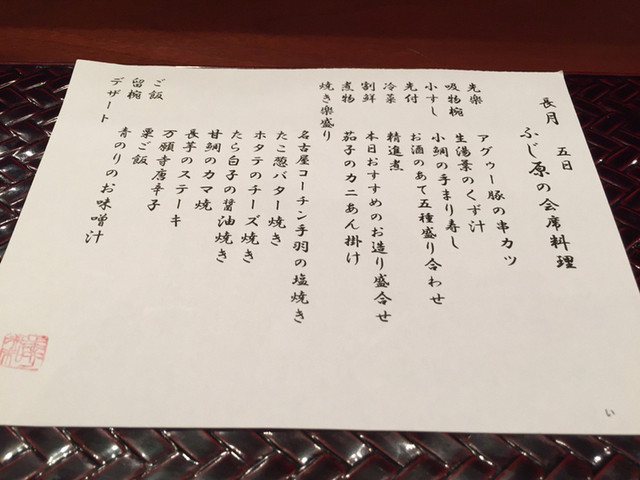 長月　五日
ふじ原の会席料理
先楽　アグゥー豚の串カツ
吸物椀　生湯葉のくず汁
小すし　小鯛の手まり寿し
先付　お酒のあて五種盛り合わせ
冷菜　精進煮
割鮮　本日おすすめのお造り盛合せ
煮物　茄子のカニあん掛け
焼き楽盛り
名古屋コーチン手羽の塩焼き
たこ葱バター焼き
ホタテのチーズ焼き
たら白子の醤油焼き
甘鯛のカマ焼
長芋のステーキ
万願寺唐辛子
ご飯　栗ご飯
留椀　青のりのお味噌汁
デザート
い